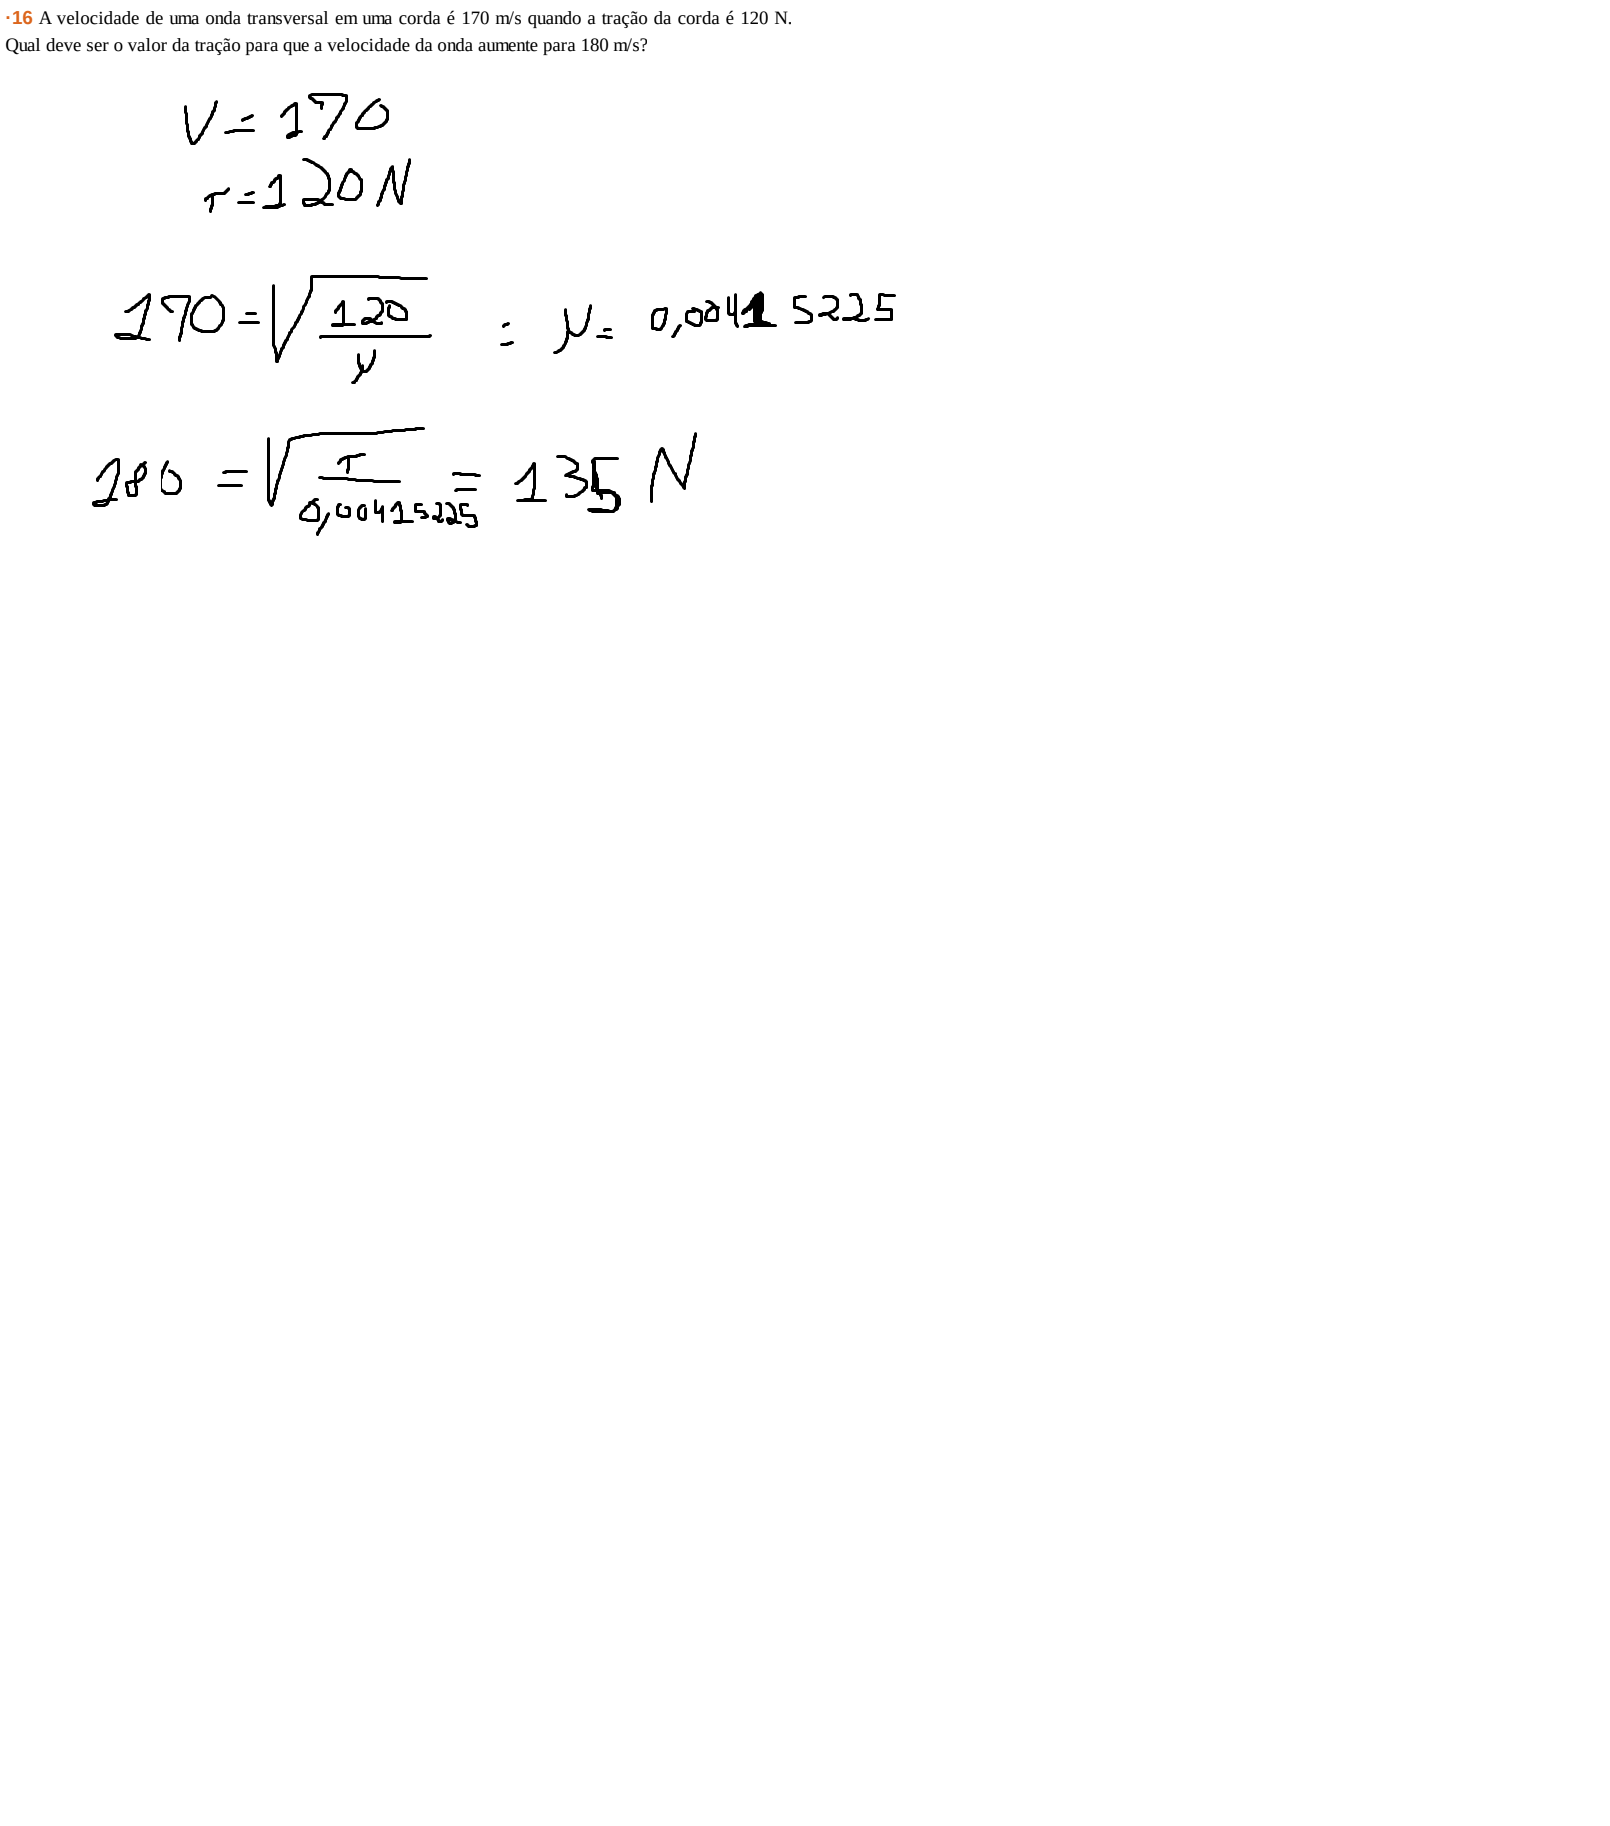 ·16 A velocidade de uma onda transversal em uma corda é 170 m/s quando a tração da corda é 120 N.
Qual deve ser o valor da tração para que a velocidade da onda aumente para 180 m/s?
V = 170
τ = 120 N
170 = √(120/μ) = μ = 0,00415225
180 = √(τ/0,00415225) = 135 N